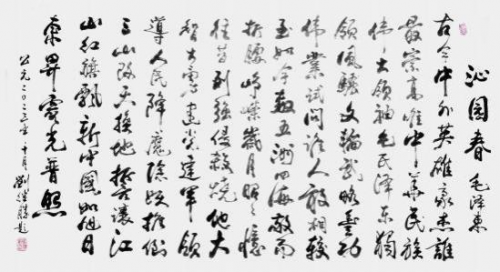 沁园春 毛泽东
古今中外英雄豪杰谁
最崇高唯中华民族
伟大领袖毛氏泽东独
领风骚文韬武略丰功
伟业试问谁人敢相较
至如今数五洲四海敬而
折腰峥嵘岁月忆
往昔列强侵杀烧他大
智大勇建党建军领
导人民降魔除妖推倒
三山改天换地誓让江
山红旗飘新中国如旭日
东升霞光普照
公元二〇二三年十月刘继胜题